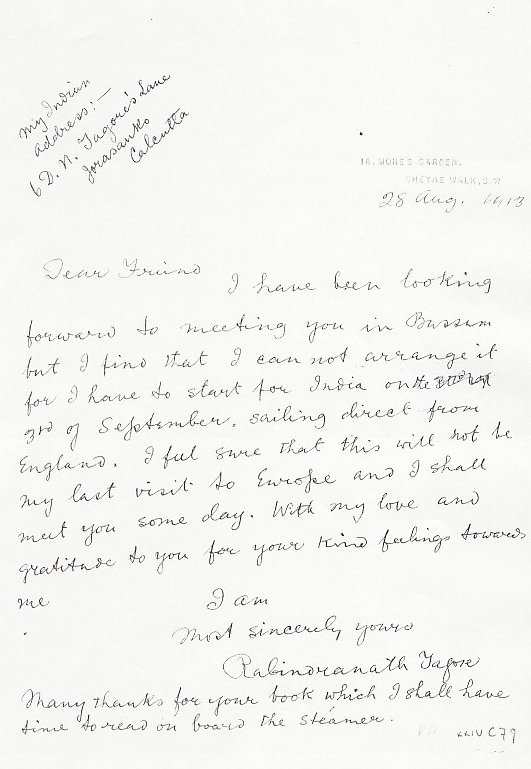 My Indian
address:—
6 D. N. Tagore's Lane
Jorasanko
Calcutta
16, MORE'S GARDEN,
CHEYNE WALK, S.W.
28 Aug. 1913
Dear Friend I have been looking
forward to meeting you in Bussum
but I find that I can not arrange it
for I have to start for India on the
3rd of September, sailing direct from
England. I feel sure that this will not be
my last visit to Europe and I shall
meet you some day. With my love and
gratitude to you for your kind feelings towards
me
I am
Most sincerely yours
Rabindranath Tagore
Many thanks for your book which I shall have
time to read on board the steamer.
XXIV C 79